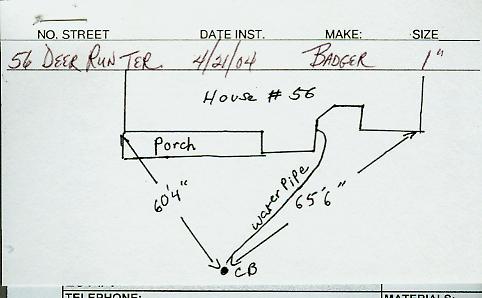 NO. STREET DATE INST. MAKE: SIZE
56 DEER RUN TER. 4/21/04 BADGER 1"
House # 56
Porch
60'4"
water pipe
65'6"
CB
TELEPHONE: MATERIALS: